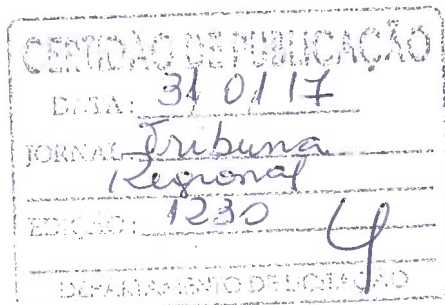 CERTIDÃO DE PUBLICAÇÃO
DATA: 31/01/17
JORNAL: Tribuna
Regional
EDIÇÃO: 1230
DEPARTAMENTO DE LICITAÇÃO